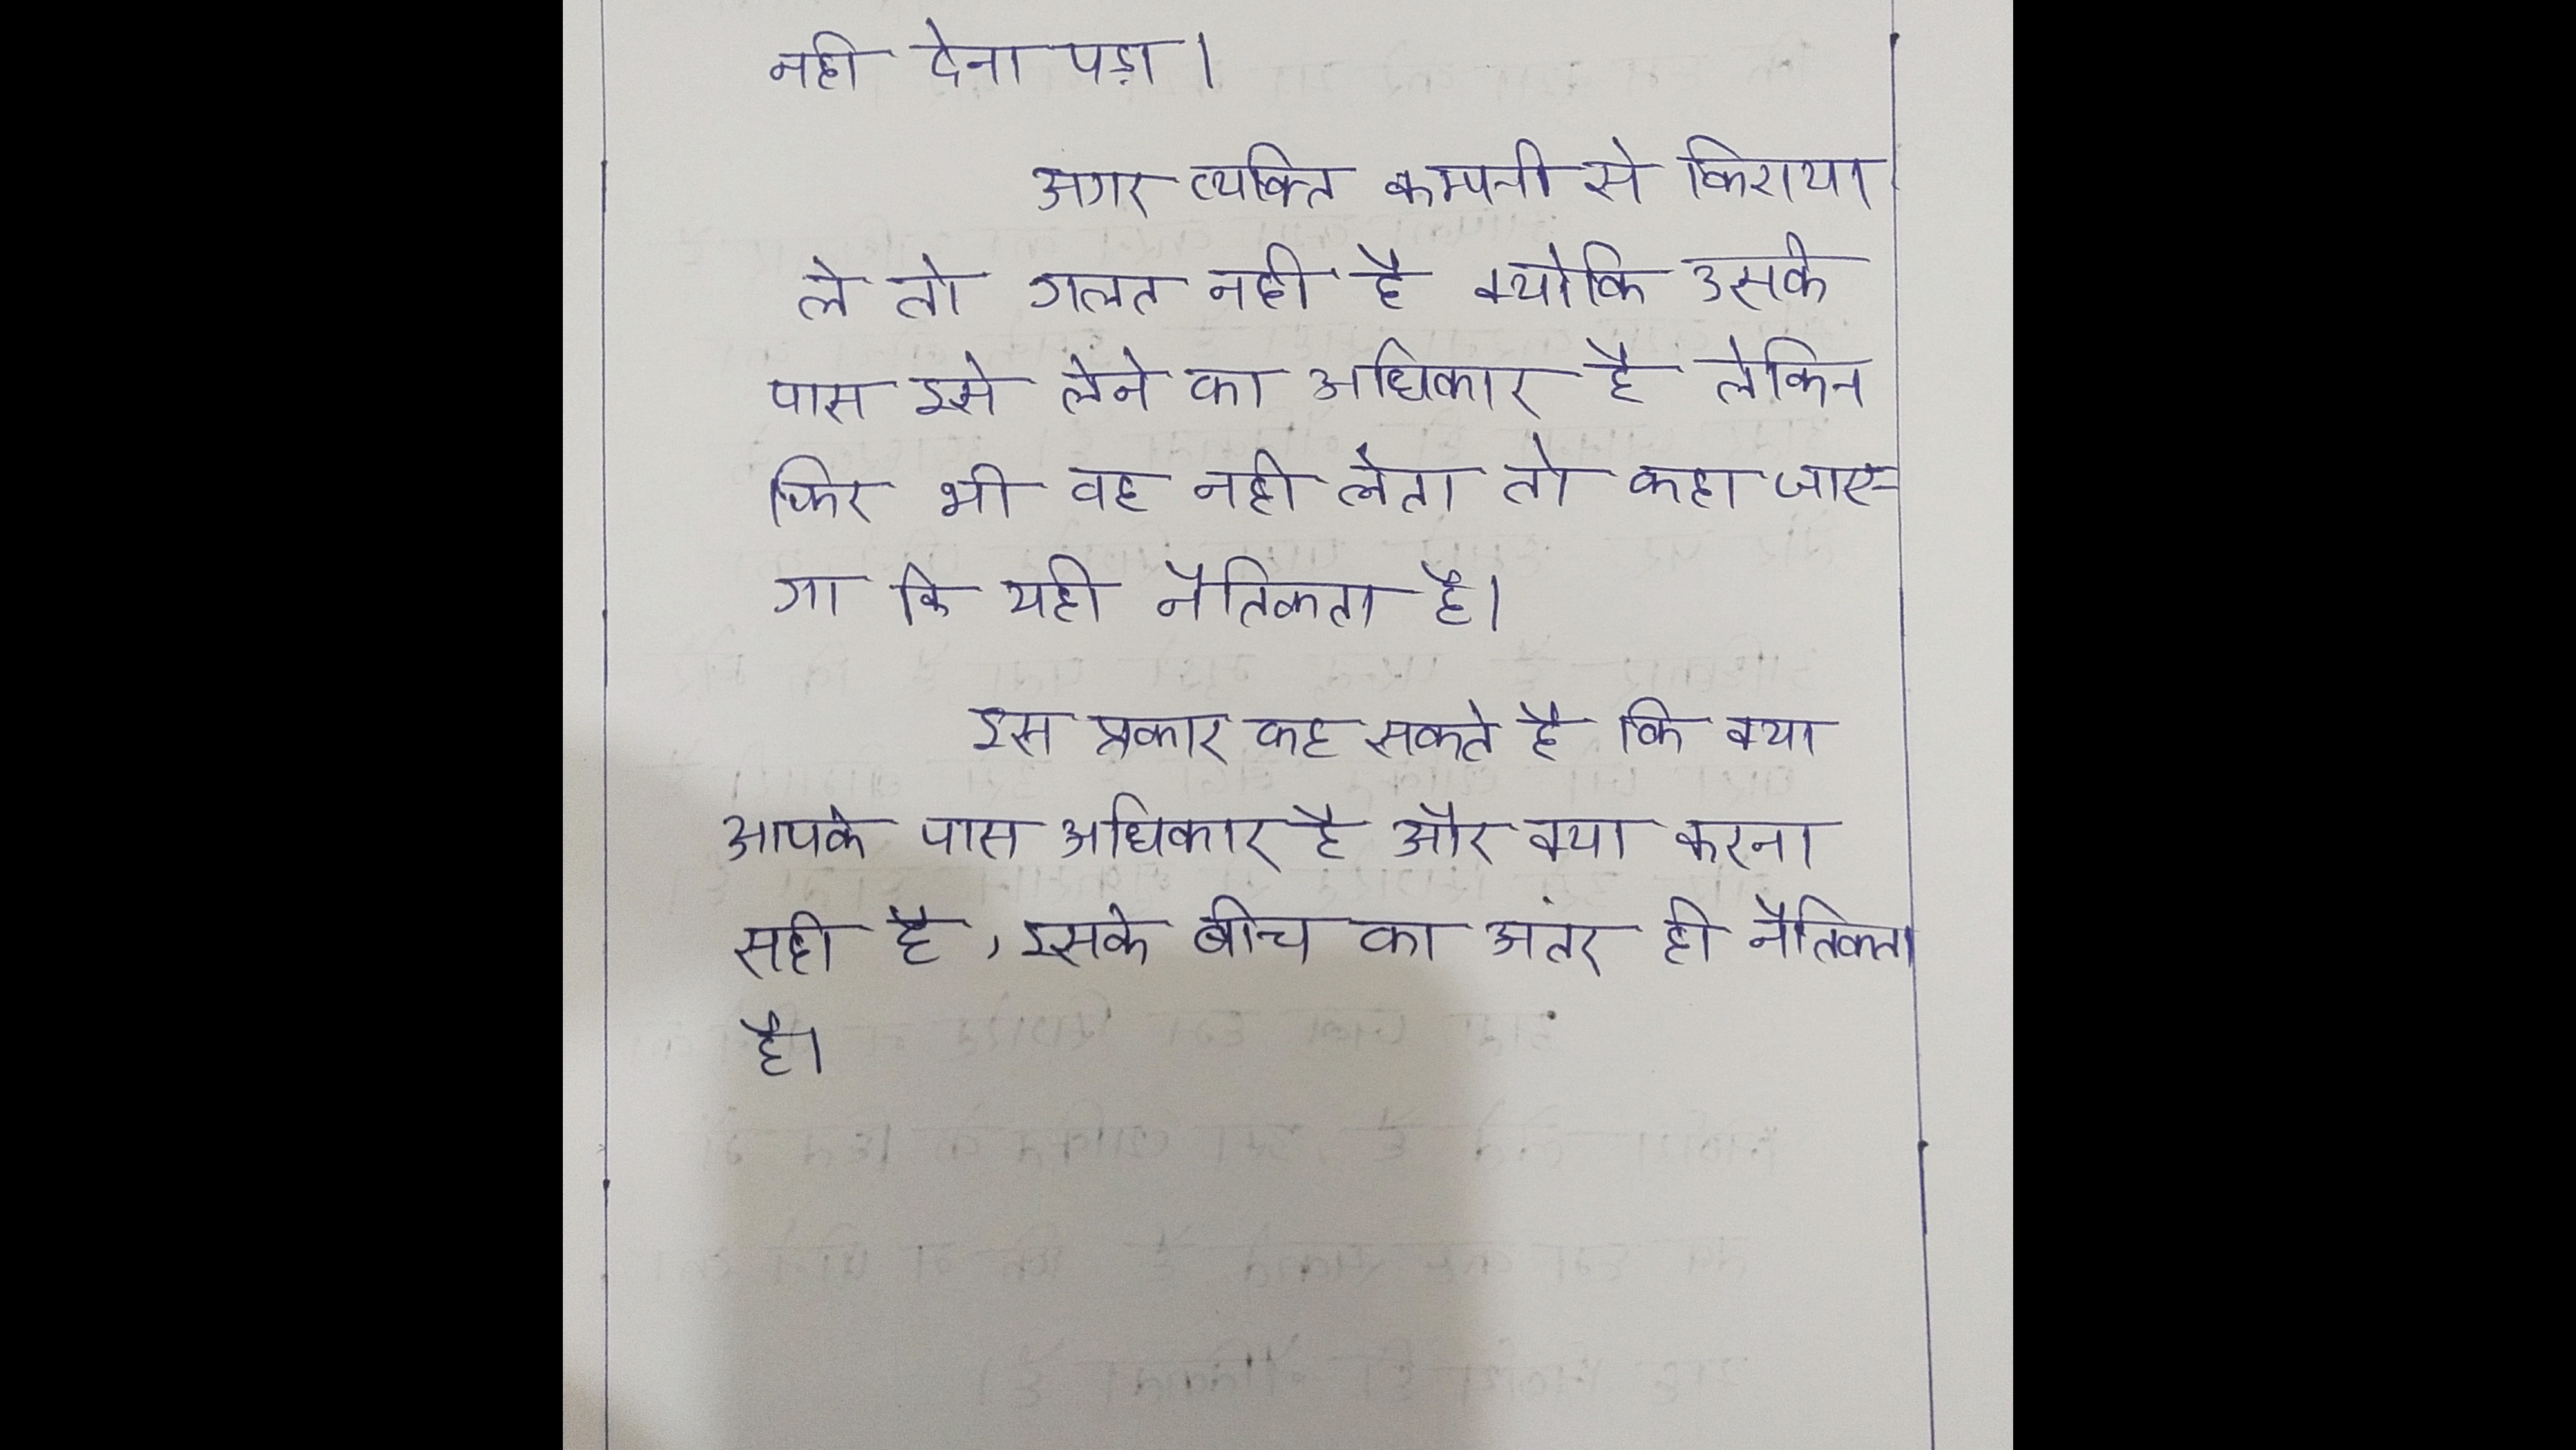 नही देना पड़ा।
अगर व्यक्ति कम्पनी से किराया
ले तो गलत नही है क्योकि उसके
पास इसे लेने का अधिकार है लेकिन
फिर भी वह नही लेता तो कहा जाए-
गा कि यही नैतिकता है।
इस प्रकार कह सकते है कि क्या
आपके पास अधिकार है और क्या करना
सही है, इसके बीच का अंतर ही नैतिकता
है।